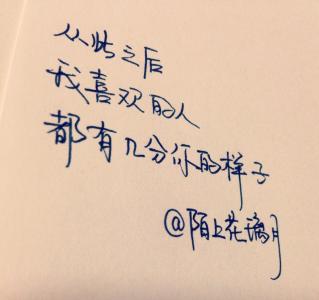 从此之后
我喜欢的人
都有几分你的样子
@陌上花璃月